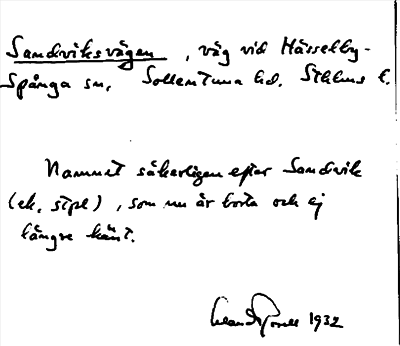 Sandviksvägen, väg vid Hässelby-
Spånga sn, Sollentuna hd. Sthlms l.
Namnet säkerligen efter Sandvik
(ek. stpl), som nu är borta och ej
längre känt.
1932